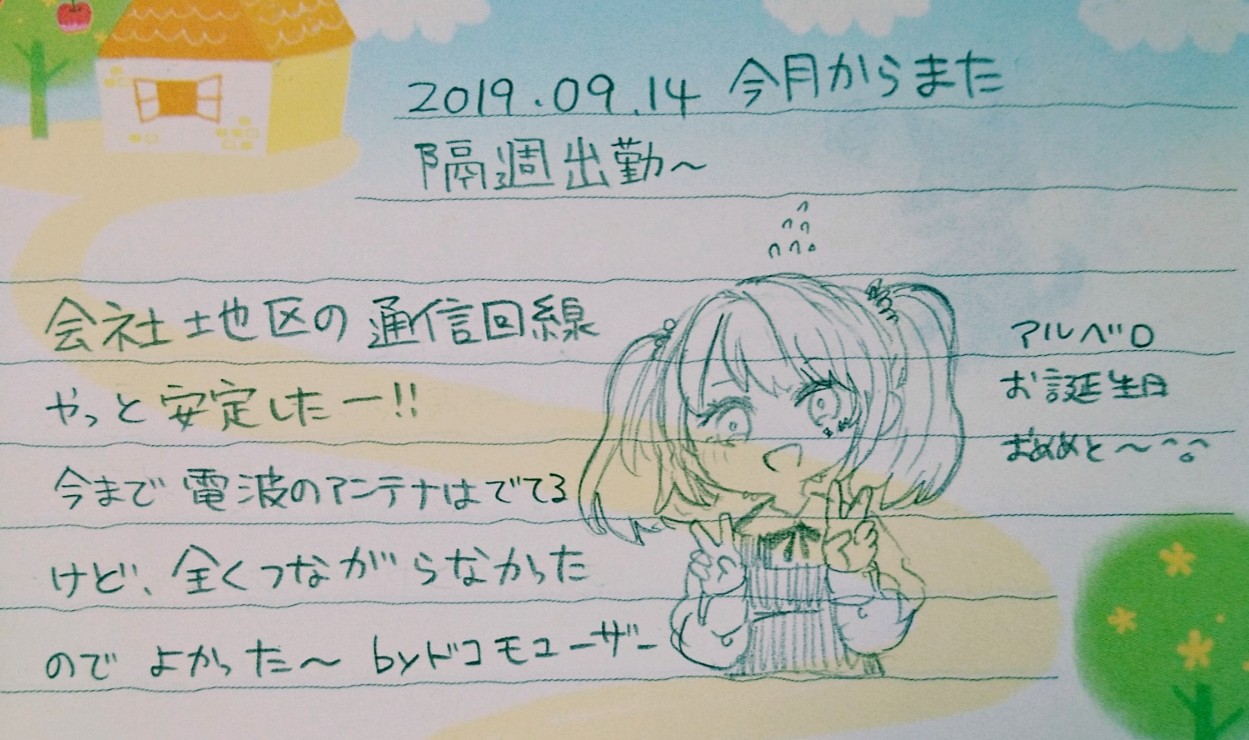 2019.09.14 今月からまた
隔週出勤〜
会社土地区の通信回線
やっと安定したー!!
今まで電波のアンテナはでてる
けど、全くつながらなかった
のでよかった〜 byドコモユーザー
アルベロ
お誕生日
おめめと〜^^